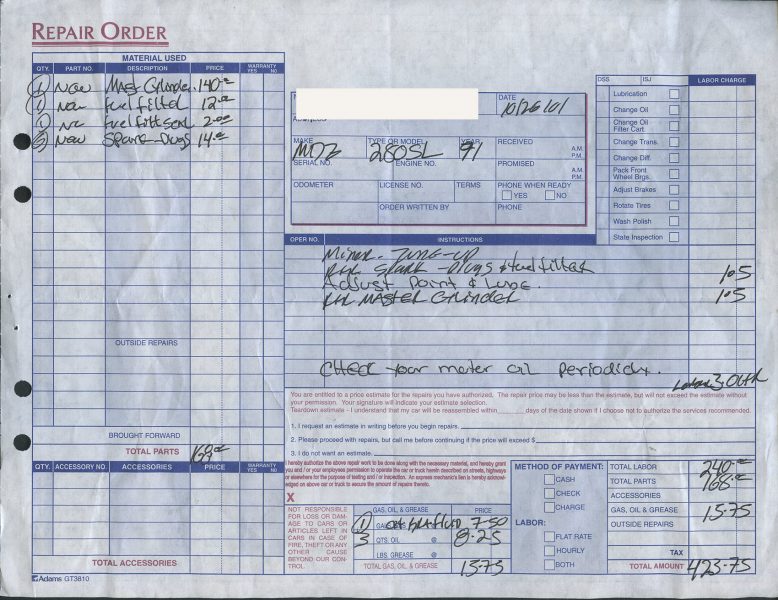 REPAIR ORDER
MATERIAL USED
QTY. PART NO. DESCRIPTION PRICE WARRANTY YES NO
1 New Mast Grinder 140.00
1 New fuel filted 12.00
1 fuel filt seal 2.00
New Spark-Plugs 14.00
OUTSIDE REPAIRS
BROUGHT FORWARD
TOTAL PARTS
QTY. ACCESSORY NO. ACCESSORIES PRICE WARRANTY YES NO
TOTAL ACCESSORIES
Adams GT3810
DATE
10/26/01
MAKE TYPE OR MODEL YEAR RECEIVED A.M. P.M.
280SL 91
SERIAL NO. ENGINE NO. PROMISED A.M. P.M.
ODOMETER LICENSE NO. TERMS PHONE WHEN READY
YES NO
ORDER WRITTEN BY PHONE
DSS ISJ LABOR CHARGE
Lubrication
Change Oil
Change Oil Filter Cart.
Change Trans.
Change Diff.
Pack Front Wheel Brgs.
Adjust Brakes
Rotate Tires
Wash Polish
State Inspection
OPER NO. INSTRUCTIONS
Miner. Tune-up
R+R Spark-Plugs & fuel filter 105
Adjust Point & Lube.
R+R MASTER Grinder 105
CHECK your moter oil periodicly.
You are entitled to a price estimate for the repairs you have authorized. The repair price may be less than the estimate, but will not exceed the estimate without
your permission. Your signature will indicate your estimate selection.
Teardown estimate - I understand that my car will be reassembled within days of the date shown if I choose not to authorize the services recommended.
1. I request an estimate in writing before you begin repairs.
2. Please proceed with repairs, but call me before continuing if the price will exceed $
3. I do not want an estimate.
I hereby authorize the above repair work to be done along with the necessary material, and hereby grant
you and / or your employees permission to operate the car or truck herein described on streets, highways
or elsewhere for the purpose of testing and / or inspection. An express mechanic's lien is hereby acknowl-
edged on above car or truck to secure the amount of repairs thereto.
X
NOT RESPONSIBLE
FOR LOSS OR DAM-
AGE TO CARS OR
ARTICLES LEFT IN
CARS IN CASE OF
FIRE, THEFT OR ANY
OTHER CAUSE
BEYOND OUR CON-
TROL
GAS, OIL & GREASE PRICE
1 7-50
3 QTS. OIL @ 8-25
LBS. GREASE @
TOTAL GAS, OIL, & GREASE 15-75
METHOD OF PAYMENT:
CASH
CHECK
CHARGE
LABOR:
FLAT RATE
HOURLY
BOTH
TOTAL LABOR 240.00
TOTAL PARTS 168.00
ACCESSORIES
GAS, OIL & GREASE 15-75
OUTSIDE REPAIRS
TAX
TOTAL AMOUNT 423-75